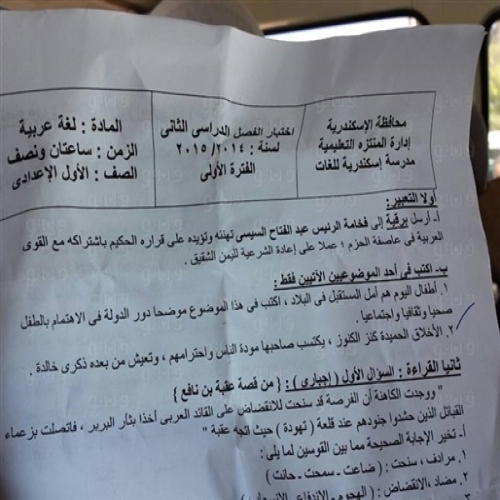 محافظة الإسكندرية
إدارة المنتزه التعليمية
مدرسة إسكندرية للغات
اختبار الفصل الدراسى الثانى
لسنة : ٢٠١٤ / ٢٠١٥
الفترة الأولى
المادة : لغة عربية
الزمن : ساعتان ونصف
الصف : الأول الإعدادى
أولا التعبير:
أ- أرسل برقية إلى فخامة الرئيس عبد الفتاح السيسى تهنئه وتؤيده على قراره الحكيم باشتراكه مع القوى
العربية فى عاصفة الحزم ؛ عملا على إعادة الشرعية لليمن الشقيق .
ب- اكتب فى أحد الموضوعيين الآتيين فقط :
١. أطفال اليوم هم أمل المستقبل فى البلاد ، اكتب فى هذا الموضوع موضحا دور الدولة فى الاهتمام بالطفل
صحيا وثقافيا واجتماعيا .
٢. الأخلاق الحميدة كنز الكنوز ، يكتسب صاحبها مودة الناس واحترامهم ، وتعيش من بعده ذكرى خالدة .
ثانيا القراءة : السؤال الأول ( إجبارى ) : { من قصة عقبة بن نافع }
" ووجدت الكاهنة أن الفرصة قد سنحت للانقضاض على القائد العربى أخذا بثأر البربر ، فاتصلت بزعماء
القبائل الذين حشدوا جنودهم عند قلعة ( تهودة ) حيث اتجه عقبة "
أ- تخير الإجابة الصحيحة مما بين القوسين لما يلى :
١. مرادف ، سنحت : ( ضاعت - سمحت - حانت )
٢. مضاد ، الانقضاض : ( الهجوم - الاندفاع -